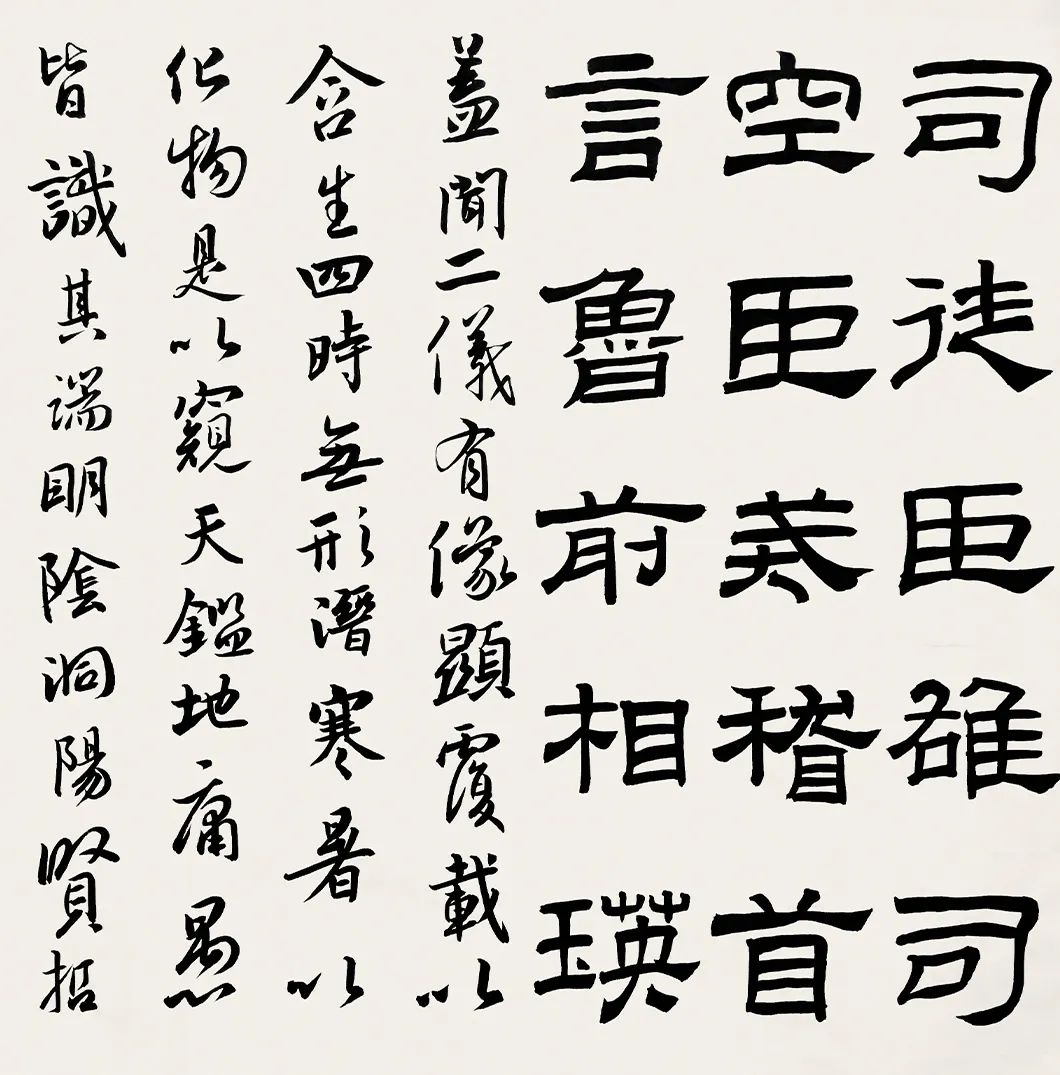 司徒臣雄司
空臣戒稽首
言魯前相瑛
蓋聞二儀有像顯覆載以
含生四時無形潛寒暑以
化物是以窺天鑑地庸愚
皆識其端明陰洞陽賢哲